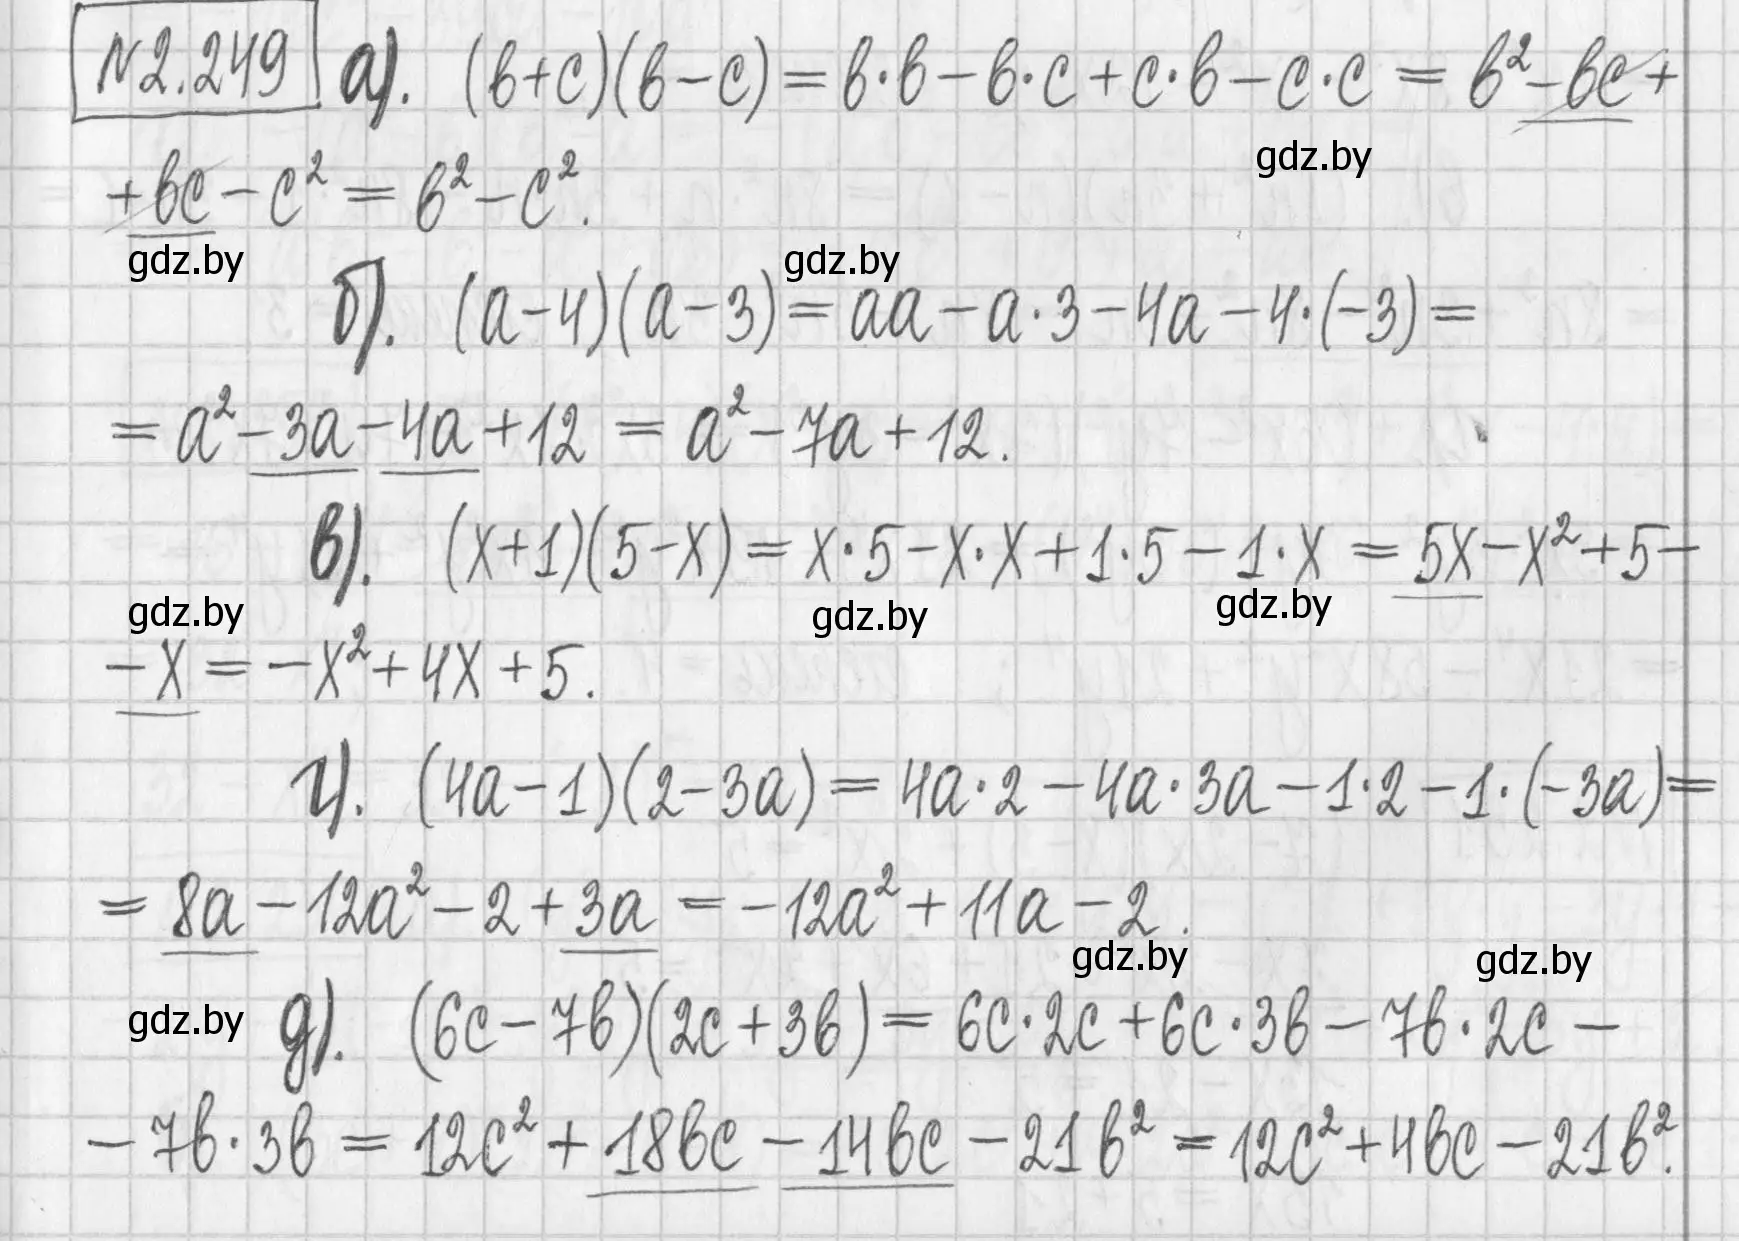 №2.249 а). (b+c)(b-c)=b·b-b·c+c·b-c·c=b²-bc+
gdz.by
+bc-c²=b²-c².
gdz.by gdz.by
б). (a-4)(a-3)=aa-a·3-4a-4·(-3)=
=a²-3a-4a+12=a²-7a+12.
в). (x+1)(5-x)=x·5-x·x+1·5-1·x=5x-x²+5-
gdz.by gdz.by gdz.by
-x=-x²+4x+5.
г). (4a-1)(2-3a)=4a·2-4a·3a-1·2-1·(-3a)=
=8a-12a²-2+3a=-12a²+11a-2.
gdz.by gdz.by
gdz.by д). (6c-7b)(2c+3b)=6c·2c+6c·3b-7b·2c-
-7b·3b=12c²+18bc-14bc-21b²=12c²+4bc-21b².